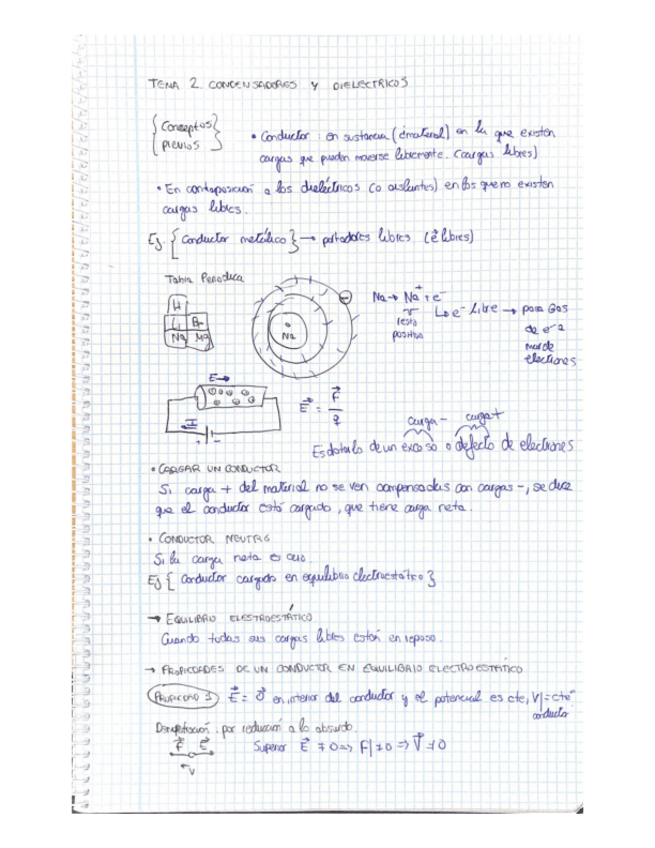 TEMA 2. CONDENSADORES Y DIELECTRICOS
{Conceptos
previos}
• Conductor: en sustancia (ó material) en la que existen
cargas que pueden moverse libremente. (cargas libres)
• En contraposicion a los dieléctricos (o aislantes) en los que no existen
cargas libres.
Ej. {Conductor metálico} → portadores libres (ē libres)
Tabla Periodica
H
Li Be
Na Mg
Na
Na → Na⁺ + e⁻
resto
positivo
↳ e⁻ libre → para Gas
de e⁻ a
mar de
electrones
E→
I
+ -
E⃗ = F⃗ / q
carga - carga +
Es dotarlo de un exceso o defecto de electrones
• CARGAR UN CONDUCTOR
Si carga + del material no se ven compensadas con cargas -, se dice
que el conductor está cargado, que tiene carga neta.
• CONDUCTOR NEUTRO
Si la carga neta es cero.
Ej { Conductor cargado en equilibrio electrostático }
→ EQUILIBRIO ELESTROESTÁTICO
Cuando todas sus cargas libres están en reposo.
→ PROPIEDADES DE UN CONDUCTOR EN EQUILIBRIO ELECTROESTATICO
PROPIEDAD 1 E⃗ = 0⃗ en interior del conductor y el potencial es cte, V|=cte
conductor
Demostración: por reducción a lo absurdo.
F⃗ E⃗
v
Suponer E⃗ ≠ 0 => F| ≠ 0 => V⃗ ≠ 0